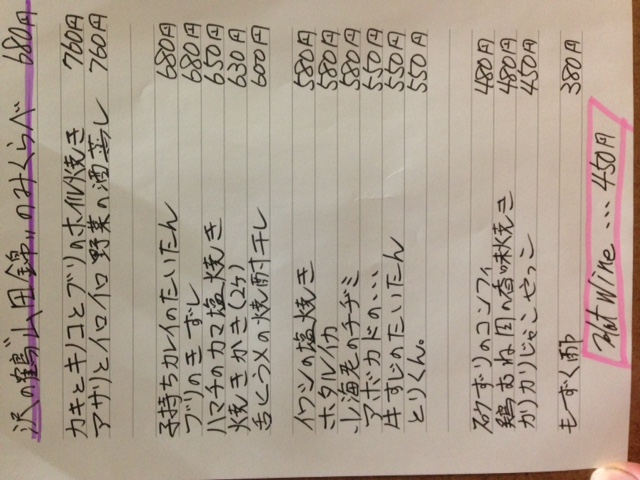 沢の鶴"山田錦"のみくらべ 680円
カキとキノコとブリのホイル焼き 760円
アサリとイロイロ野菜の酒蒸し 760円
子持ちカレイのたいたん 680円
ブリのきずし 680円
ハマチのカマ塩焼き 650円
焼きかき(2ケ) 630円
舌とうメの焼酎干し 600円
イワシの塩焼き 580円
ホタルイカ 580円
小海老のチヂミ 580円
アボカドの・・・ 550円
牛すじのたいたん 550円
とりくん。 550円
砂ずりのコンフィ 480円
鶏むね肉の香味焼き 480円
カリカリじゃこやっこ 450円
もずく酢 380円
Hot Wine ... 450円